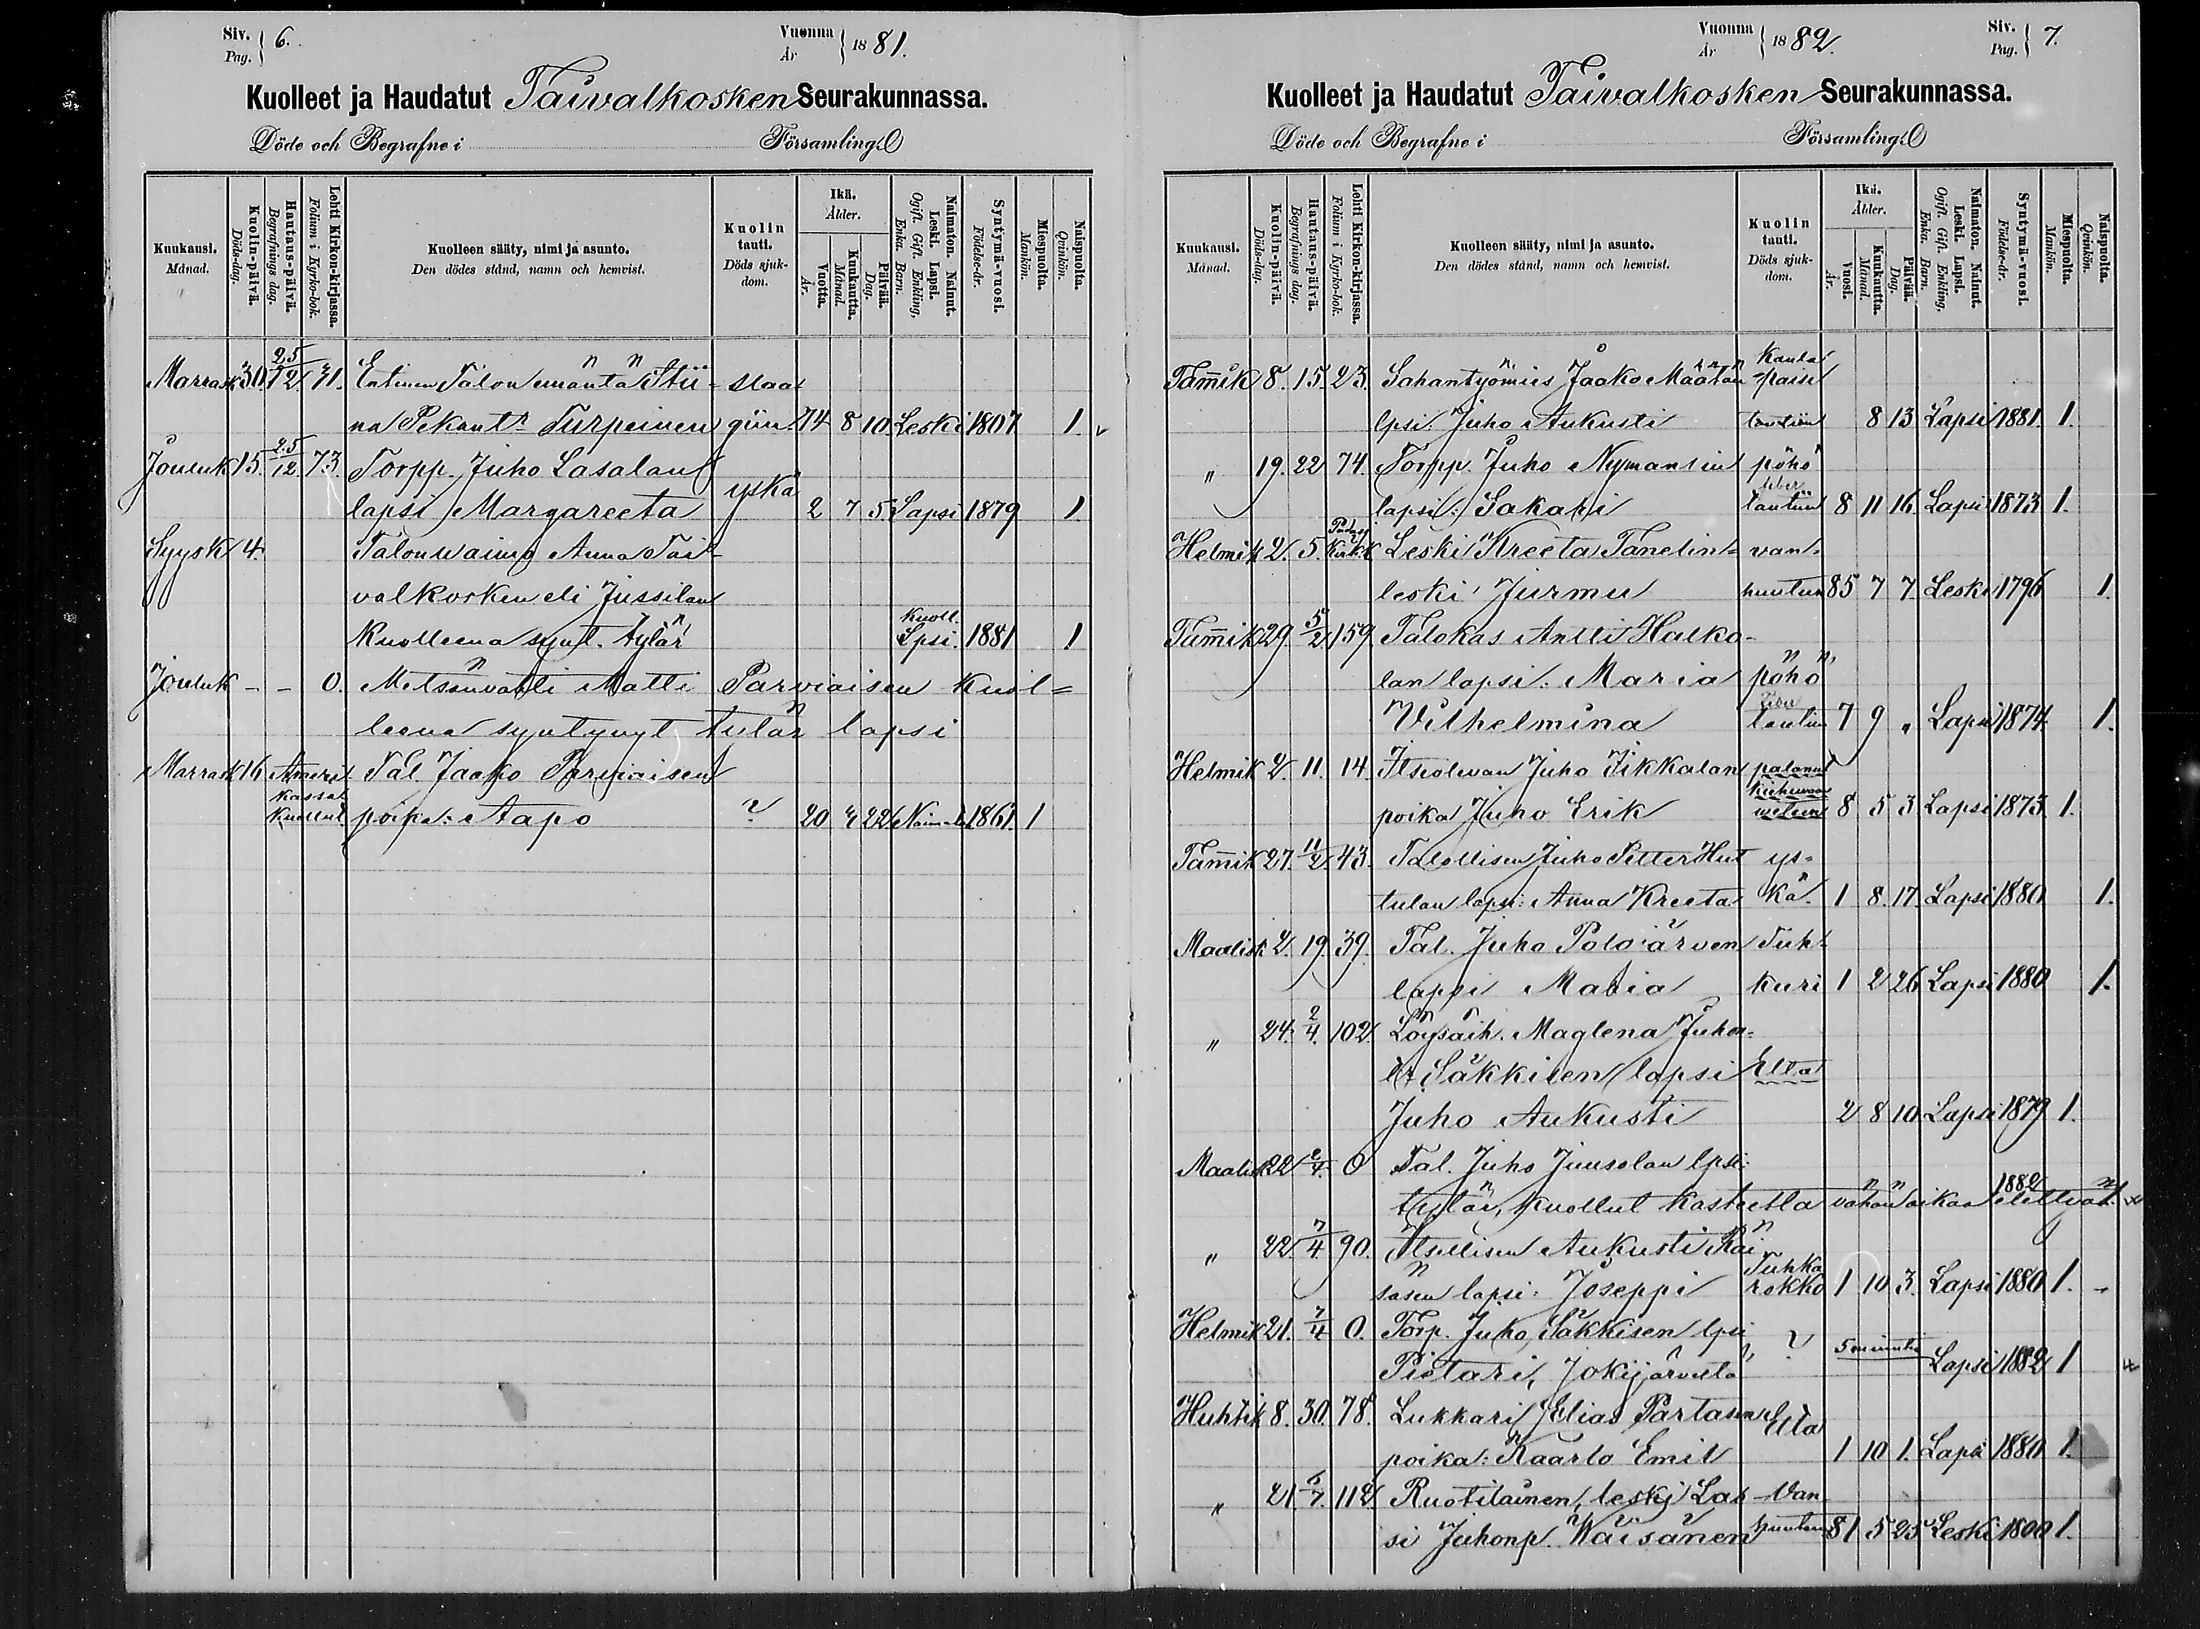 Siv. Pag. 6. Vuonna År 1881.
Kuolleet ja Haudatut Taivalkosken Seurakunnassa.
Döde och Begrafne i Församling.
Kuukausi. Månad.
Kuolin-päivä. Döds-dag.
Hautaus-päivä. Begrafnings dag.
Lehti Kirkon-kirjassa. Folium i Kyrko-bok.
Kuolleen sääty, nimi ja asunto. Den dödes stånd, namn och hemvist.
Kuolin tauti. Döds sjuk-dom.
Ikä. Ålder.
Vuotta. År.
Kuukautta. Månad.
Päivää. Dag.
Naimaton. Nainut. Leski. Lapsi. Ogift. Gift. Enkling, Enka. Barn.
Syntymä-vuosi. Födelse-år.
Miespuolta. Mankön.
Naispuolta. Qvinkön.
Marrask 30. 25/12 71. Entinen Talon emäntä Stii- slaa
na Pekant:r Turpeinen giin 74 8 10 Leski 1807 1.
Jouluk 15. 25/12 73. Torpp. Juho Lasalan
lapsi Margareeta yskä 2 7 5 Lapsi 1879 1
Syysk 4. Talonwaimo Anna Tai-
valkosken eli Jussilan
Kuolleena synt. tytär kuoll. Lpsi. 1881 1
Jouluk - - 0. Metsänvahti Matti Parviaisen kuol=
leena syntynyt tytär lapsi
Marrask 16 Ameri Tal. Jaako Parviaisen
kassa kuollut poika: Aapo ? 20 4 22 Naim-t. 1861. 1
Siv. Pag. 7. Vuonna År 1882.
Kuolleet ja Haudatut Taivalkosken Seurakunnassa.
Döde och Begrafne i Församling.
Kuukausi. Månad.
Kuolin-päivä. Döds-dag.
Hautaus-päivä. Begrafnings dag.
Lehti Kirkon-kirjassa. Folium i Kyrko-bok.
Kuolleen sääty, nimi ja asunto. Den dödes stånd, namn och hemvist.
Kuolin tauti. Döds sjuk-dom.
Ikä. Ålder.
Vuosi. År.
Kuukautta. Månad.
Päivää. Dag.
Naimaton. Nainut. Leski. Lapsi. Ogift. Gift. Enkling, Enka. Barn.
Syntymä-vuosi. Födelse-år.
Miespuolta. Mankön.
Naispuolta. Qvinkön.
Tammik 8. 15. 23. Sahantyömies Jaako Määtän Kaula paisi
lpsi. Juho Aukusti tautiin 8 13 Lapsi 1881. 1.
" 19. 22 74. Torpp. Juho Nymansin pöhö
lapsi: Sakari tautiin 8 11 16 Lapsi 1873 1.
Helmik 2. 5. Leski Kreeta Tanelin= van-
leski Jurmu huutun 85 7 7 Leski 1796 1.
Tammik 29. 5/2 159. Talokas Antti Halko-
lan lapsi: Maria pöhö
Vilhelmina tautiin 7 9 " Lapsi 1874. 1.
Helmik 2. 11. 14. Itseolevan Juho Jikkalan palanut
poika Juho Erik kiehuvan veteen 8 5 3 Lapsi 1873. 1.
Tammik 27. 11/2 43. Talollisen Juho Petter Hut ys=
tulan lapsi: Anna Kreeta kä. 1 8. 17 Lapsi 1880 1.
Maalisk 2. 19. 39. Tal. Juho Polojärven Tuh-
lapsi Maria kuri 1 2 26 Lapsi 1880 1.
" 24. 2/4. 102. Löysäih. Maglena Juhon-
Säkkisen lapsi Elta
Juho Aukusti 2 8 10 Lapsi 1879 1.
Maalisk 22 2/4. 0 Tal. Juho Juusolan lpsi:
tytär, kuollut kasteetta vähän aikaa elettyä. 1882
" 22. 7/4 90. Itsellisen Aukusti Räi
säsen lapsi: Joseppi Tuhka rokko 1 10 3. Lapsi 1880 1.
Helmik 21. 7/4 0. Torp. Juho Säkkisen lpsi
Pietari, Jokijärveltä ? 5 minuutia Lapsi 1882 1
Huhtik 8. 30. 78. Lukkari Elias Partasen Elta
poika: Kaarlo Emil 1 10 1. Lapsi 1880 1.
" 21 112. Ruotilainen, leski Las- Van
si Juhonp. Wäisänen huutun 81 5 25 Leski 1800 1.